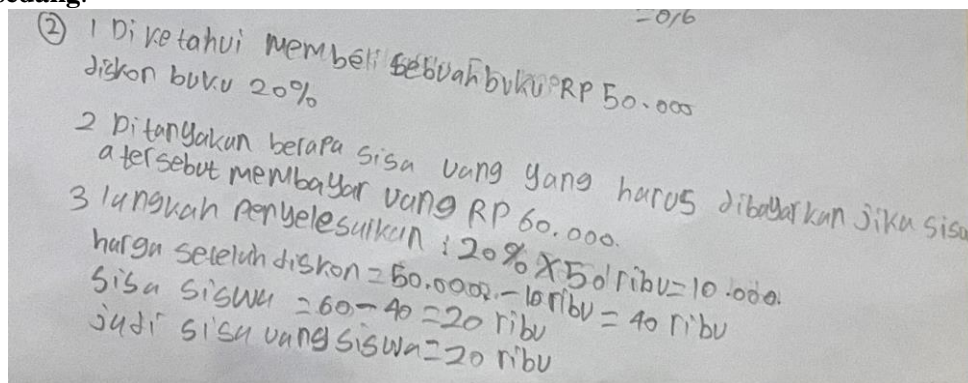 sedang.
=0,6
② 1 Diketahui membeli sebuah buku RP 50.000
diskon buku 20%
2 Ditanyakan berapa sisa uang yang harus dibayarkan jika sisw
a tersebut membayar uang RP 60.000.
3 langkah Penyelesuikan : 20% X 50 ribu = 10.000.
harga seteluh diskon = 50.000 - 10 ribu = 40 ribu
Sisa siswa = 60 - 40 = 20 ribu
jadi sisa uang siswa = 20 ribu